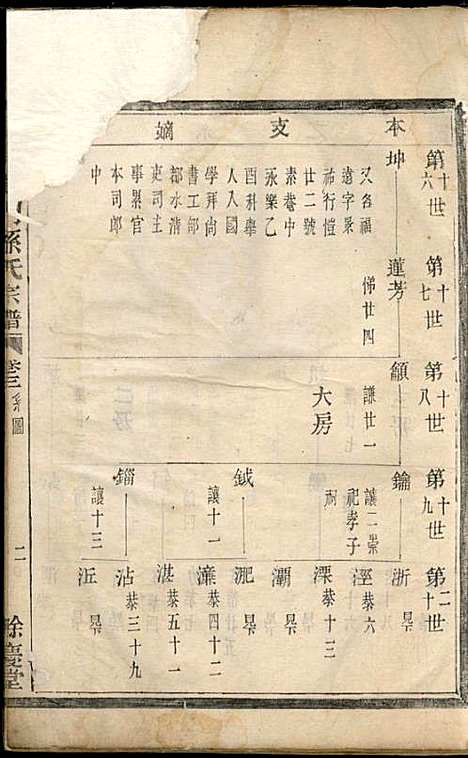 本支嫡
第十六世
坤
又名福
遠字景
祐行愷
廿二號
素菴中
永樂乙
酉科舉
人入國
學拜尙
書工部
都水淸
吏司主
事累官
本司郎
中
第十七世
蓮芳
悌廿四
第十八世
顲
謙廿一
大房
第十九世
鑰
讓二崇
祀孝子
祠
鉞
讓十一
錙
讓十三
第二十世
浙
早
涇
恭六
溧
恭十三
灞
早
淝
早
濂
恭四十二
湛
恭五十一
沾
恭三十九
浜
早
孫氏宗譜
卷三
系圖
二
餘慶堂